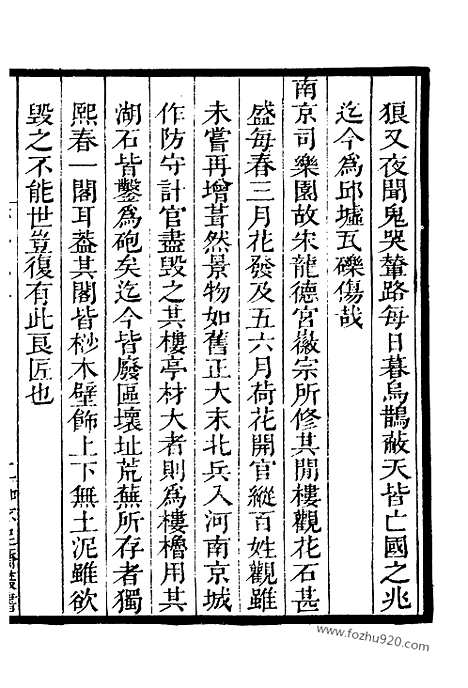 狼又夜聞鬼哭輦路每日暮烏鵲蔽天皆亡國之兆
迄今為邱墟瓦礫傷哉
南京司樂園故宋龍德宮徽宗所修其閒樓觀花石甚
盛每春三月花發及五六月荷花開官縱百姓觀雖
未嘗再增葺然景物如舊正大末北兵入河南京城
作防守計官盡毀之其樓亭材大者則為樓櫓用其
湖石皆鑿為砲矣迄今皆廢區壞址荒蕪所存者獨
熙春一閣耳蓋其閣皆桫木壁飾上下無土泥雖欲
毀之不能世豈復有此良匠也
www.fozhu920.com